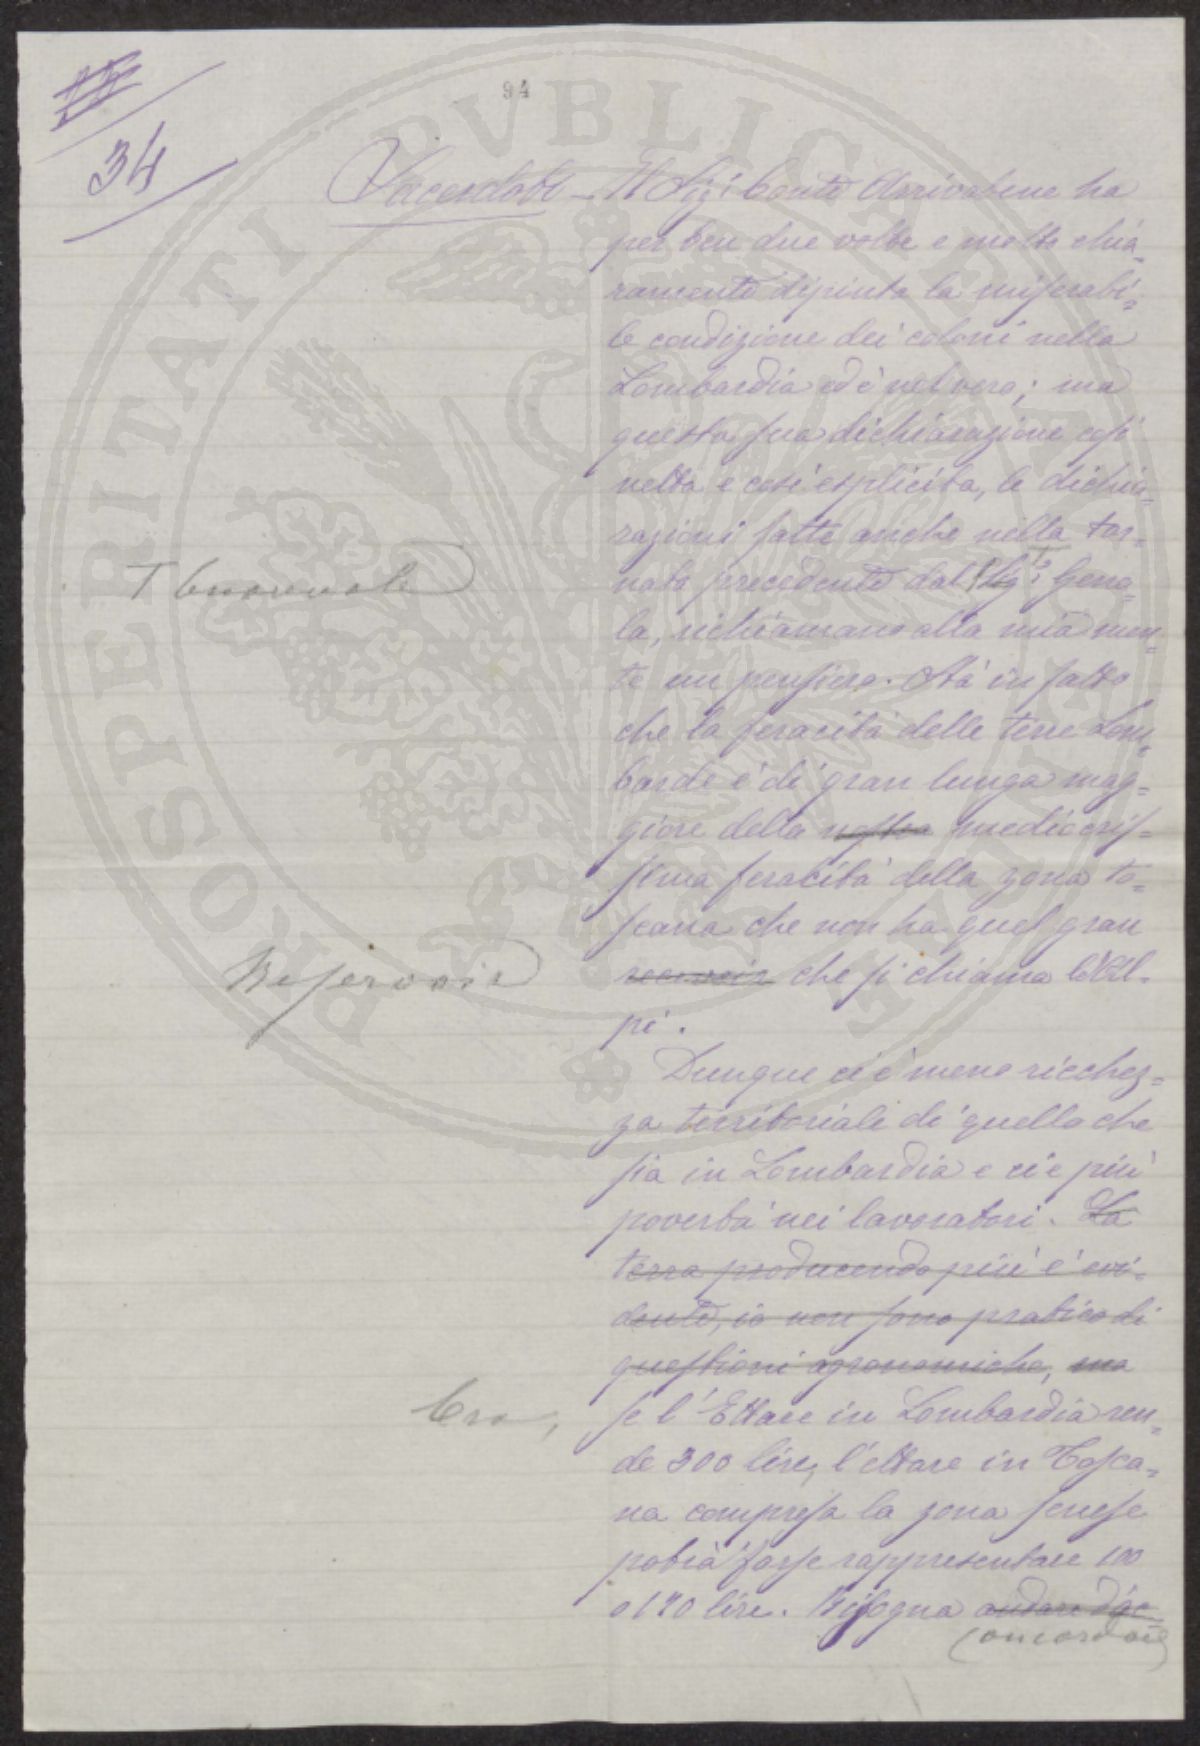 94
34
PROSPERITATI PVBLICAE
Il Sig. Conte Arrivabene ha
per ben due volte e molto chia-
ramente dipinta la miserabi-
le condizione dei coloni nella
Lombardia ed è nel vero; ma
questa sua dichiarazione così
netta e così esplicita, le dichia-
razioni fatte anche nella tor-
nata precedente dal Sig. Geno-
T Onorevole
la, richiamano alla mia men-
te un pensiero. Stà in fatto
che la feracità delle terre Lom-
barde è di gran lunga mag-
giore della nostra mediocris-
sima feracità della zona to-
scana che non ha quel gran
Reservoir
recevoir che si chiama le Al-
pi.
Dunque ci è meno ricchez-
za territoriale di quello che
sia in Lombardia e ci è più
povertà nei lavoratori. La
terra producendo più è evi-
dente, io non sono pratico di
questioni agronomiche, ma
Ora,
se l'Ettare in Lombardia ren-
de 300 lire, l'ettare in Tosca-
na compresa la zona senese
potrà forse rappresentare 100
o 120 lire. Bisogna andare d'ac
concordare